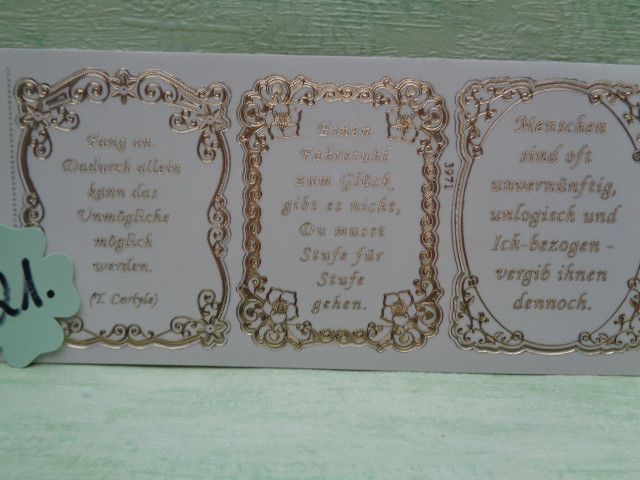 Fang an.
Dadurch allein
kann das
Unmögliche
möglich
werden.
(T. Carlyle)
Einen
Fahrstuhl
zum Glück
gibt es nicht,
Du musst
Stufe für
Stufe
gehen.
3971
Menschen
sind oft
unvernünftig,
unlogisch und
Ich-bezogen -
vergib ihnen
dennoch.
21.